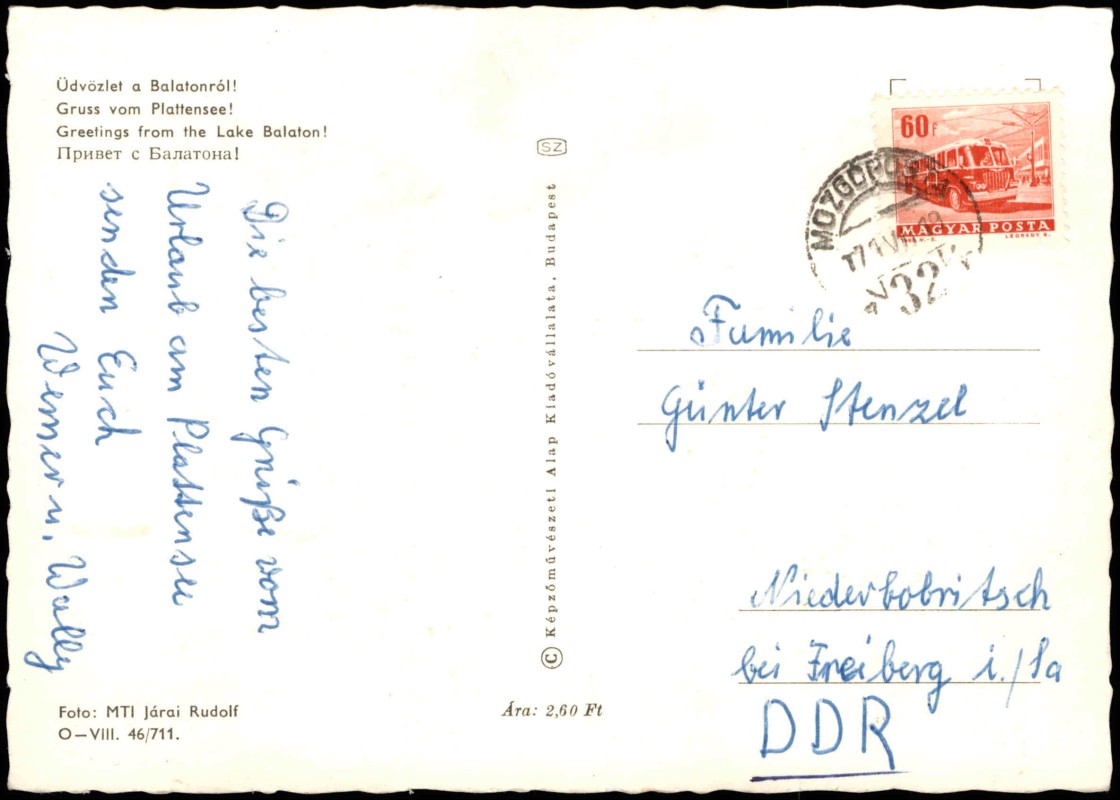 Üdvözlet a Balatonról!
Gruss vom Plattensee!
Greetings from the Lake Balaton!
Привет с Балатона!
Die besten Grüße vom
Urlaub am Plattensee
senden Euch
Werner u. Wally
Foto: MTI Járai Rudolf
O—VIII. 46/711.
SZ
© Képzőművészeti Alap Kiadóvállalata, Budapest
Ára: 2,60 Ft
60 f
MAGYAR POSTA
LEGRÁDY S.
MOZGÓPOSTA
32
Familie
Günter Stenzel
Niederbobritsch
bei Freiberg i./Sa
DDR